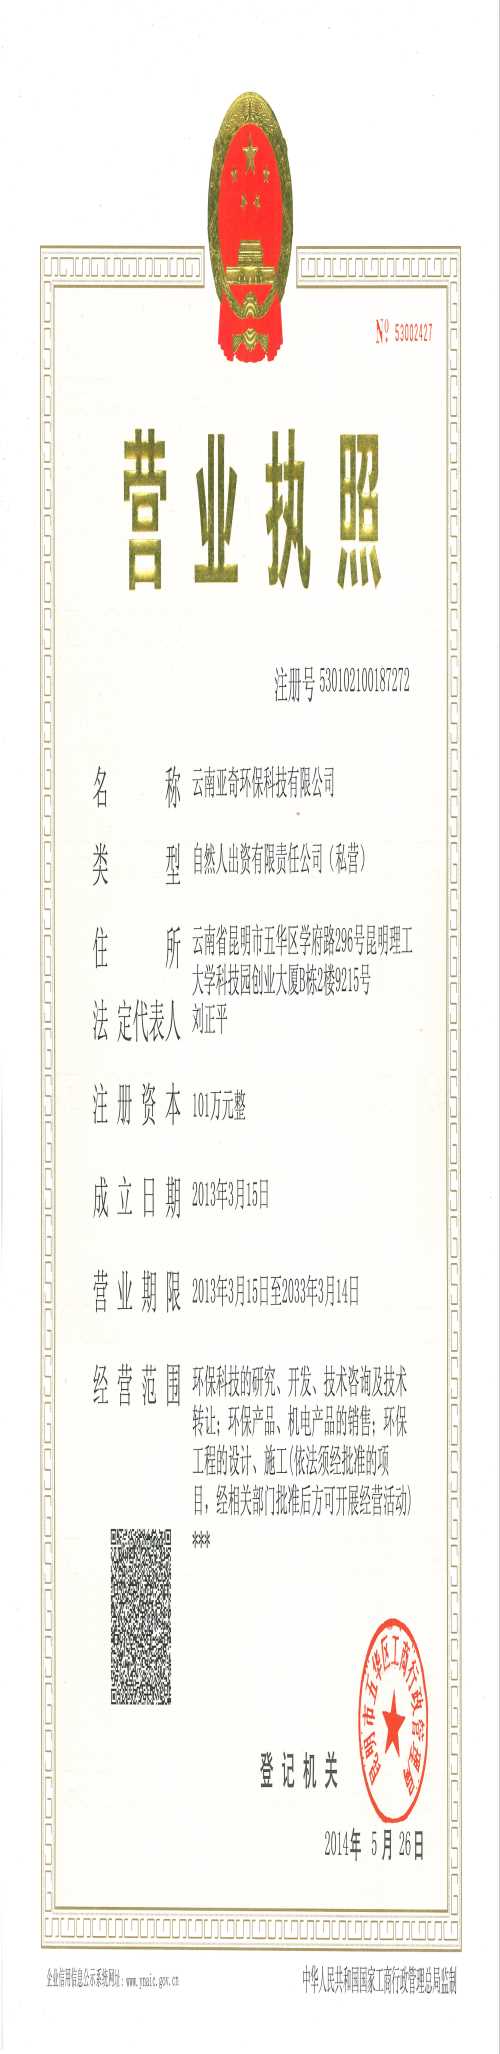 № 53002427
营业执照
注册号 530102100187272
名称 云南亚奇环保科技有限公司
类型 自然人出资有限责任公司（私营）
住所 云南省昆明市五华区学府路296号昆明理工
大学科技园创业大厦B栋2楼9215号
法定代表人 刘正平
注册资本 101万元整
成立日期 2013年3月15日
营业期限 2013年3月15日至2033年3月14日
经营范围 环保科技的研究、开发、技术咨询及技术
转让；环保产品、机电产品的销售；环保
工程的设计、施工(依法须经批准的项
目，经相关部门批准后方可开展经营活动)
***
昆明市五华区工商行政管理局
登记机关
2014年 5 月 26日
企业信用信息公示系统网址：www.ynaic.gov.cn
中华人民共和国国家工商行政管理总局监制